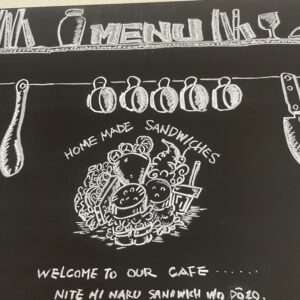 MENU
HOME MADE SANDWICHES
WELCOME TO OUR CAFE ······
NITE HI NARU SANDWICH WO DŌZO.